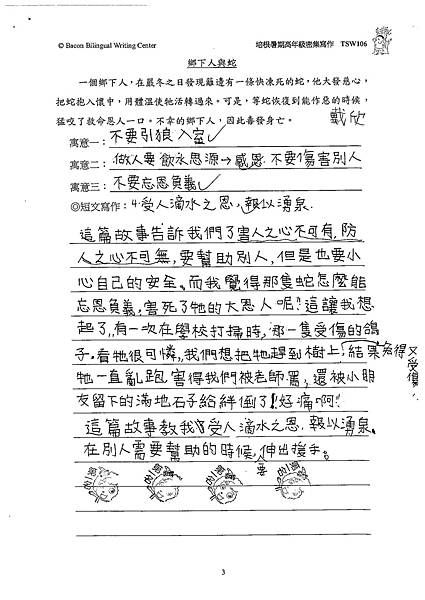 © Bacon Bilingual Writing Center 培根暑期高年級密集寫作 TSW106
鄉下人與蛇
一個鄉下人,在嚴冬之日發現籬邊有一條快凍死的蛇,他大發慈心,
把蛇抱入懷中,用體溫使牠活轉過來。可是,等蛇恢復到能作惡的時候,
猛咬了救命恩人一口。不幸的鄉下人,因此毒發身亡。
戴欣
寓意一:不要引狼入室
寓意二:做人要飲水思源→感恩.不要傷害別人
寓意三:不要忘恩負義
◎短文寫作:4.受人滴水之恩,報以湧泉.
這篇故事告訴我們了害人之心不可有,防
人之心不可無,要幫助別人,但是也要小
心自己的安全。而我覺得那隻蛇怎麼能
忘恩負義,害死了牠的大恩人呢?這讓我想
起了,有一次在學校打掃時,那一隻受傷的鴿
子.看牠很可憐,我們想把牠趕到樹上,結果
又受傷!
牠一直亂跑害得我們被老師罵,還被小朋
友留下的滿地石子給絆倒了!好痛啊!!
這篇故事教我受人滴水之恩,報以湧泉。
在別人需要幫助的時候,要伸出援手。
3